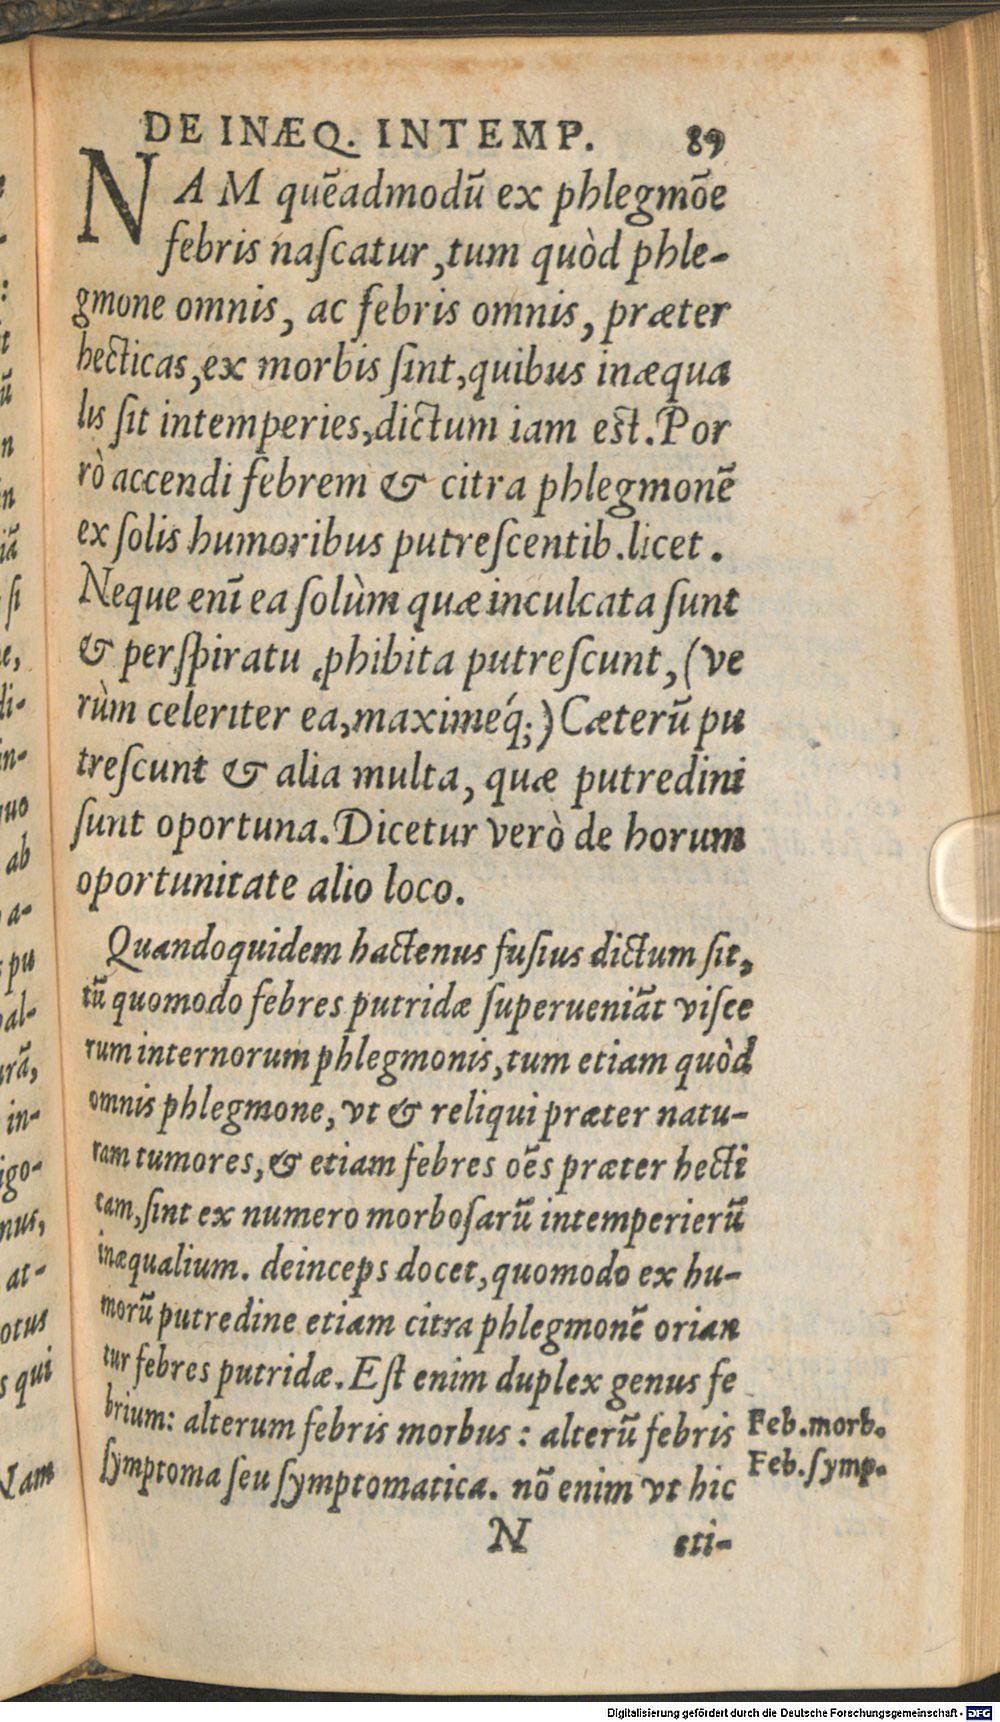 DE INÆQ. INTEMP. 89
NAM quẽadmodũ ex phlegmõe
febris naſcatur, tum quòd phle-
gmone omnis, ac febris omnis, præter
hecticas, ex morbis ſint, quibus inæqua
lis ſit intemperies, dictum iam est. Por
rò accendi febrem & citra phlegmonẽ
ex ſolis humoribus putreſcentib. licet.
Neque enĩ ea ſolùm quæ inculcata ſunt
& perſpiratu ꝓhibita putreſcunt, (ve
rùm celeriter ea, maximeq́;) Cæterũ pu
treſcunt & alia multa, quæ putredini
ſunt oportuna. Dicetur verò de horum
oportunitate alio loco.
Quandoquidem hactenus fuſius dictum ſit,
tũ quomodo febres putridæ ſuperueniãt viſce
rum internorum phlegmonis, tum etiam quòd
omnis phlegmone, vt & reliqui præter natu-
ram tumores, & etiam febres oẽs præter hecti
cam, ſint ex numero morboſarũ intemperierũ
inæqualium. deinceps docet, quomodo ex hu-
morũ putredine etiam citra phlegmonẽ orian
tur febres putridæ. Eſt enim duplex genus fe
brium: alterum febris morbus: alterũ febris
ſymptoma ſeu ſymptomatica. nõ enim vt hic
Feb. morb.
Feb. ſymp.
N eti-
Digitalisierung gefördert durch die Deutsche Forschungsgemeinschaft - DFG